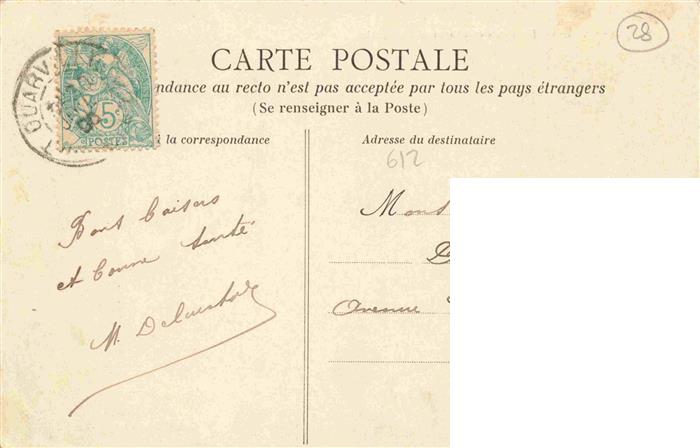 28
CARTE POSTALE
ndance au recto n'est pas acceptée par tous les pays étrangers
(Se renseigner à la Poste)
OUARV
5c
POSTES
à la correspondance
Adresse du destinataire
612
Bons baisers
et bonne santé
M.
Mons
Avenue